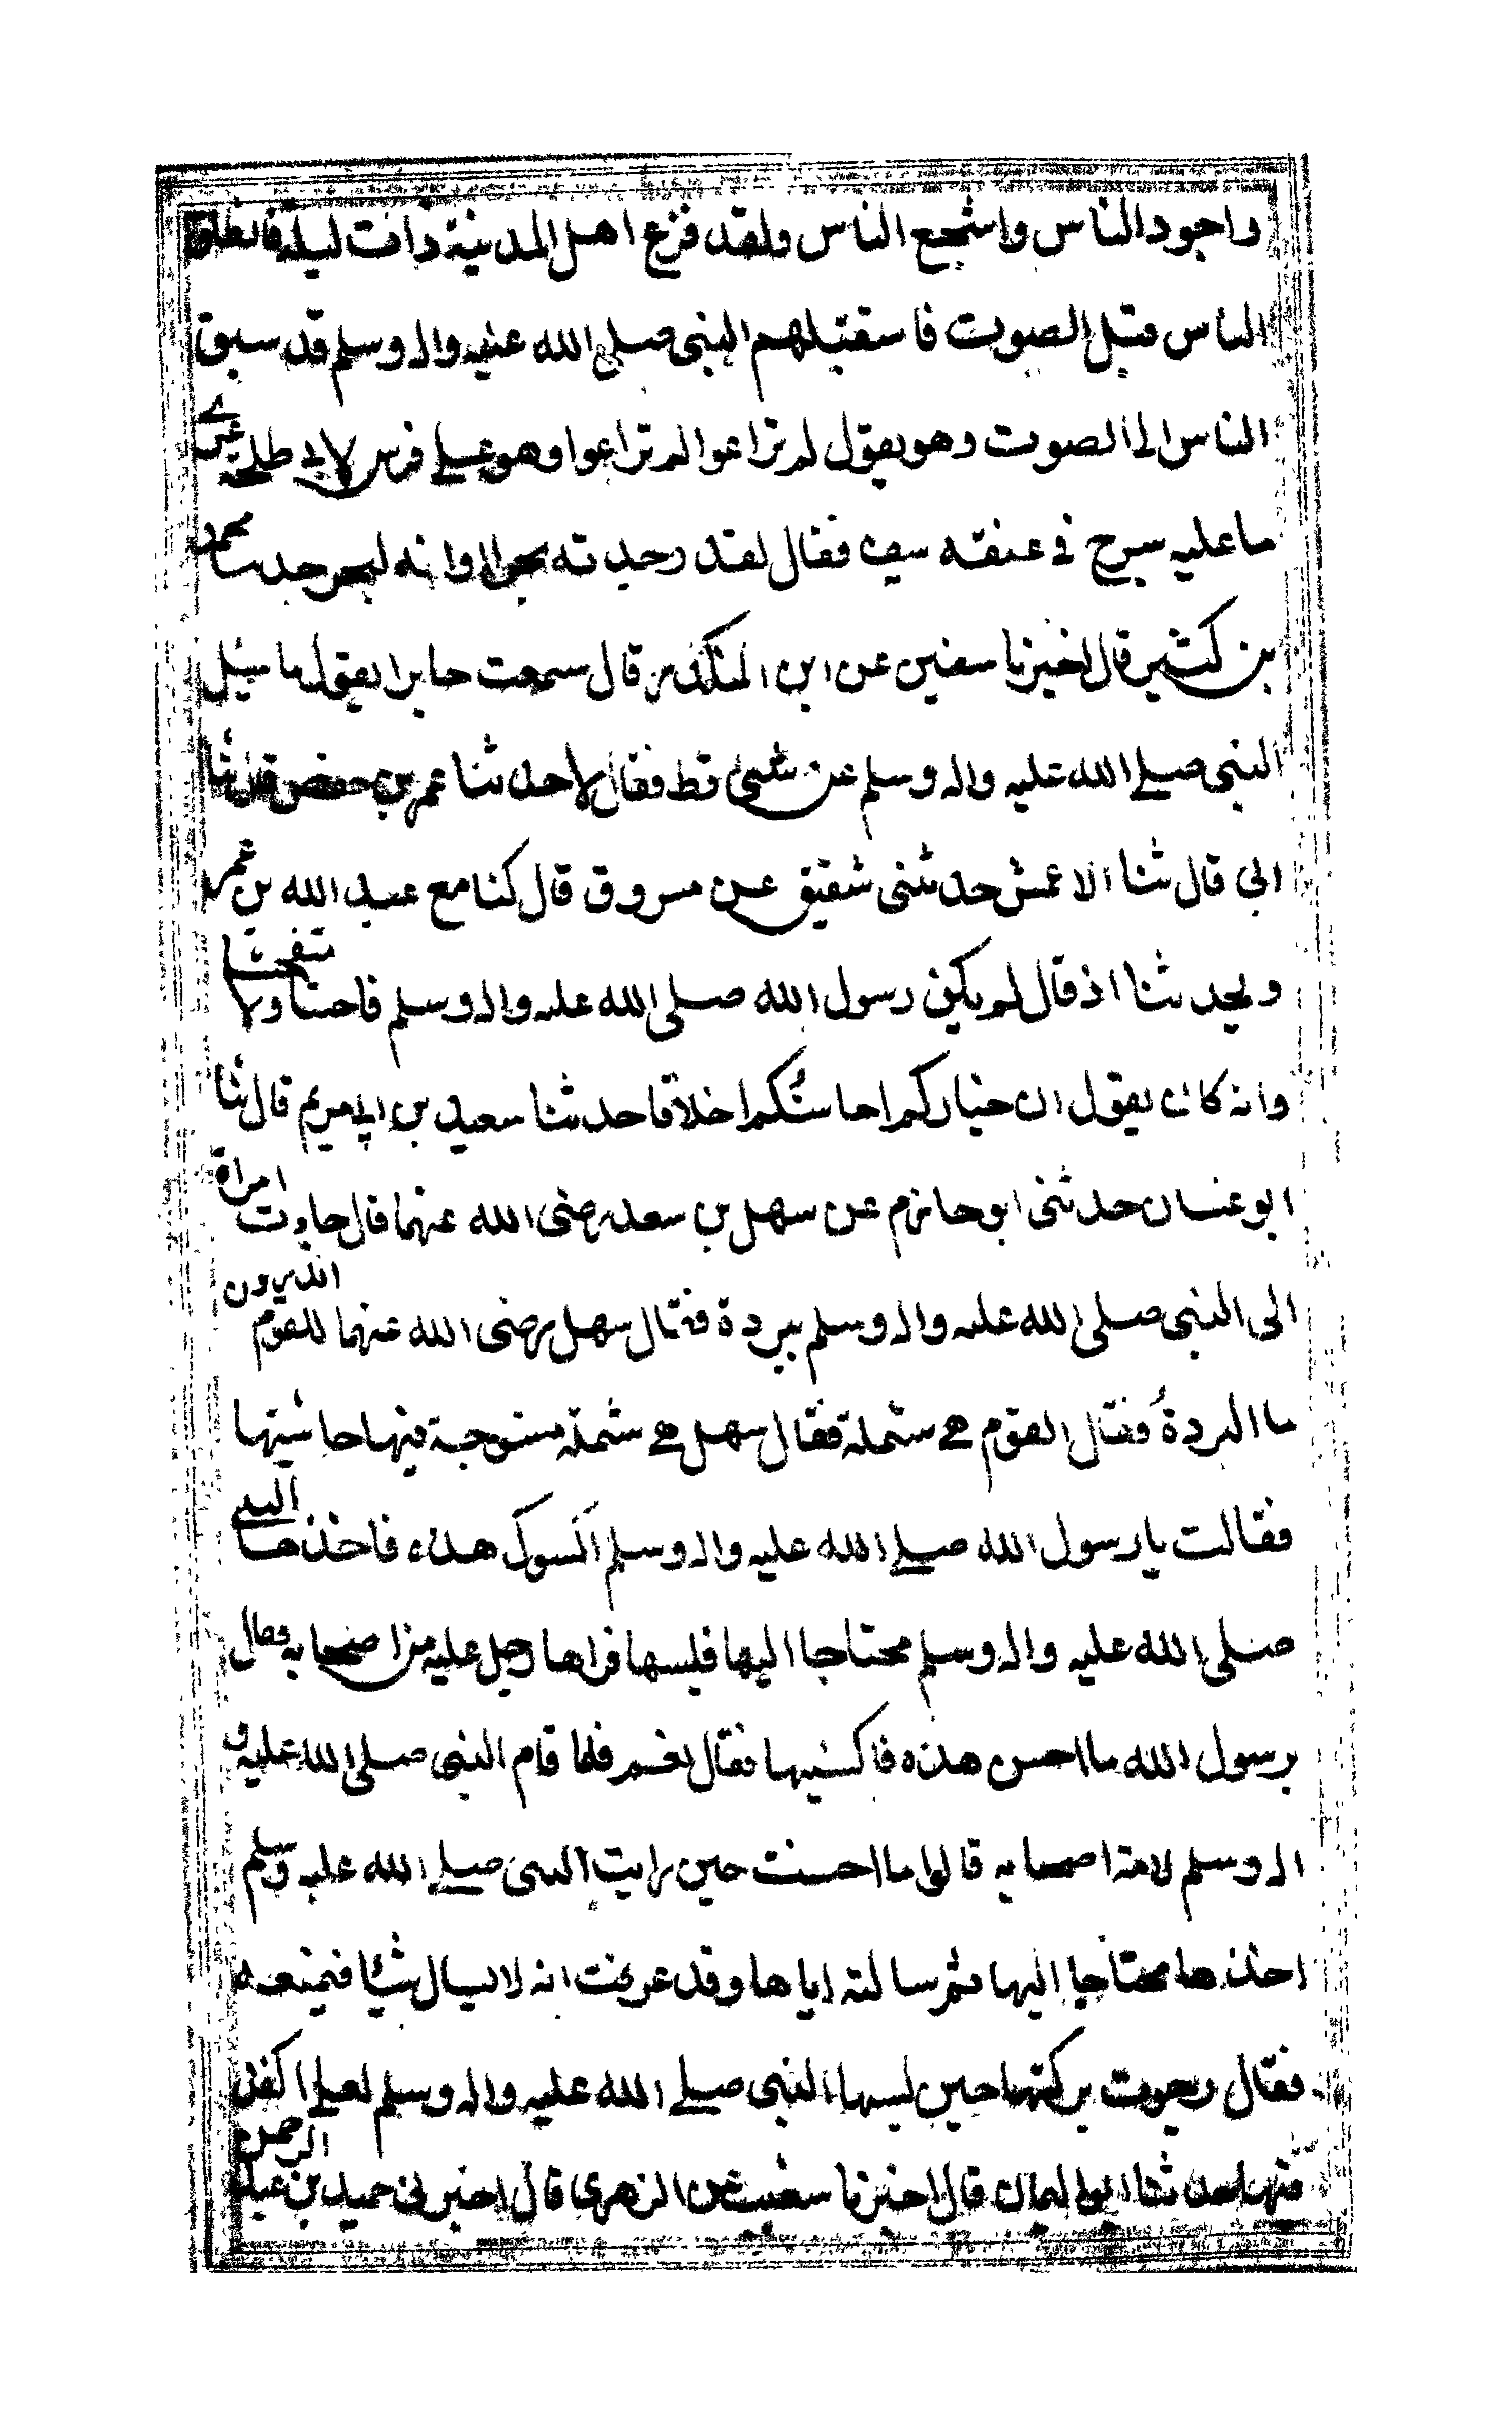 واجود الناس واشجع الناس ولقد فزع اهل المدينة ذات ليلة فانطلق
الناس قبل الصوت فاستقبلهم النبى صلى الله عليه واله وسلم قد سبق
الناس الى الصوت وهو يقول لم تراعوا لم تراعوا وهو على فرس لابى طلحة عرى
ما عليه سرج فى عنقه سيف فقال لقد وجدته بحرا او انه لبحر حدثنا محمد
بن كثير قال اخبرنا سفين عن ابن المنكدر قال سمعت جابرا يقول ما سئل
النبى صلى الله عليه واله وسلم عن شئ قط فقال لا حدثنا عمر بن حفص قال ثنا
ابى قال ثنا الاعمش حدثنى شقيق عن مسروق قال كنا مع عبد الله بن عمر
ويحدثنا اذ قال لم يكن رسول الله صلى الله عليه واله وسلم فاحشا ولا متفحشا
وانه كان يقول ان خياركم احاسنكم اخلاقا حدثنا سعيد بن ابى مريم قال ثنا
ابو غسان حدثنى ابو حازم عن سهل بن سعد رضى الله عنهما قال جاءت امراة
الى النبى صلى الله عليه واله وسلم ببردة فقال سهل رضى الله عنهما للقوم اتدرون
ما البردة فقال القوم هى شملة فقال سهل هى شملة منسوجة فيها حاشيتها
فقالت يا رسول الله صلى الله عليه واله وسلم اكسوك هذه فاخذها النبى
صلى الله عليه واله وسلم محتاجا اليها فلبسها فراها رجل عليه من اصحابه فقال
يرسول الله ما احسن هذه فاكسنيها فقال نعم فلما قام النبى صلى الله عليه و
اله وسلم لامه اصحابه قالوا ما احسنت حين رايت النبى صلى الله عليه وسلم
اخذها محتاجا اليها ثم سالته اياها وقد عرفت انه لا يسال شيئا فيمنعه
فقال رجوت بركتها حين لبسها النبى صلى الله عليه واله وسلم لعلى اكفن
فيها حدثنا ابو اليمان قال اخبرنا شعيب عن الزهرى قال اخبرنى حميد بن عبد الرحمن